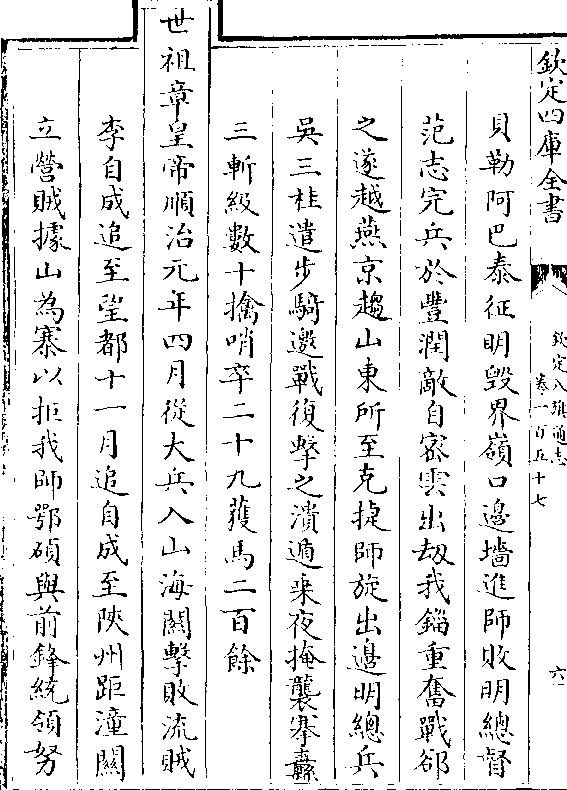 欽定四庫全書
欽定八旗通志
卷一百五十七
六
貝勒阿巴泰征明毀界嶺口邊墻進師敗明總督
范志完兵於豐潤敵自密雲出刼我錙重奮戰郤
之遂越燕京趨山東所至克捷師旋出邊明總兵
吳三桂遣步騎邀戰復擊之潰遁乗夜掩襲搴纛
三斬級數十擒哨卒二十九獲馬二百餘
世祖章皇帝順治元年四月從大兵入山海關擊敗流賊
李自成追至望都十一月追自成至陜州距潼關
立營賊據山為寨以拒我師鄂碩與前鋒統領努